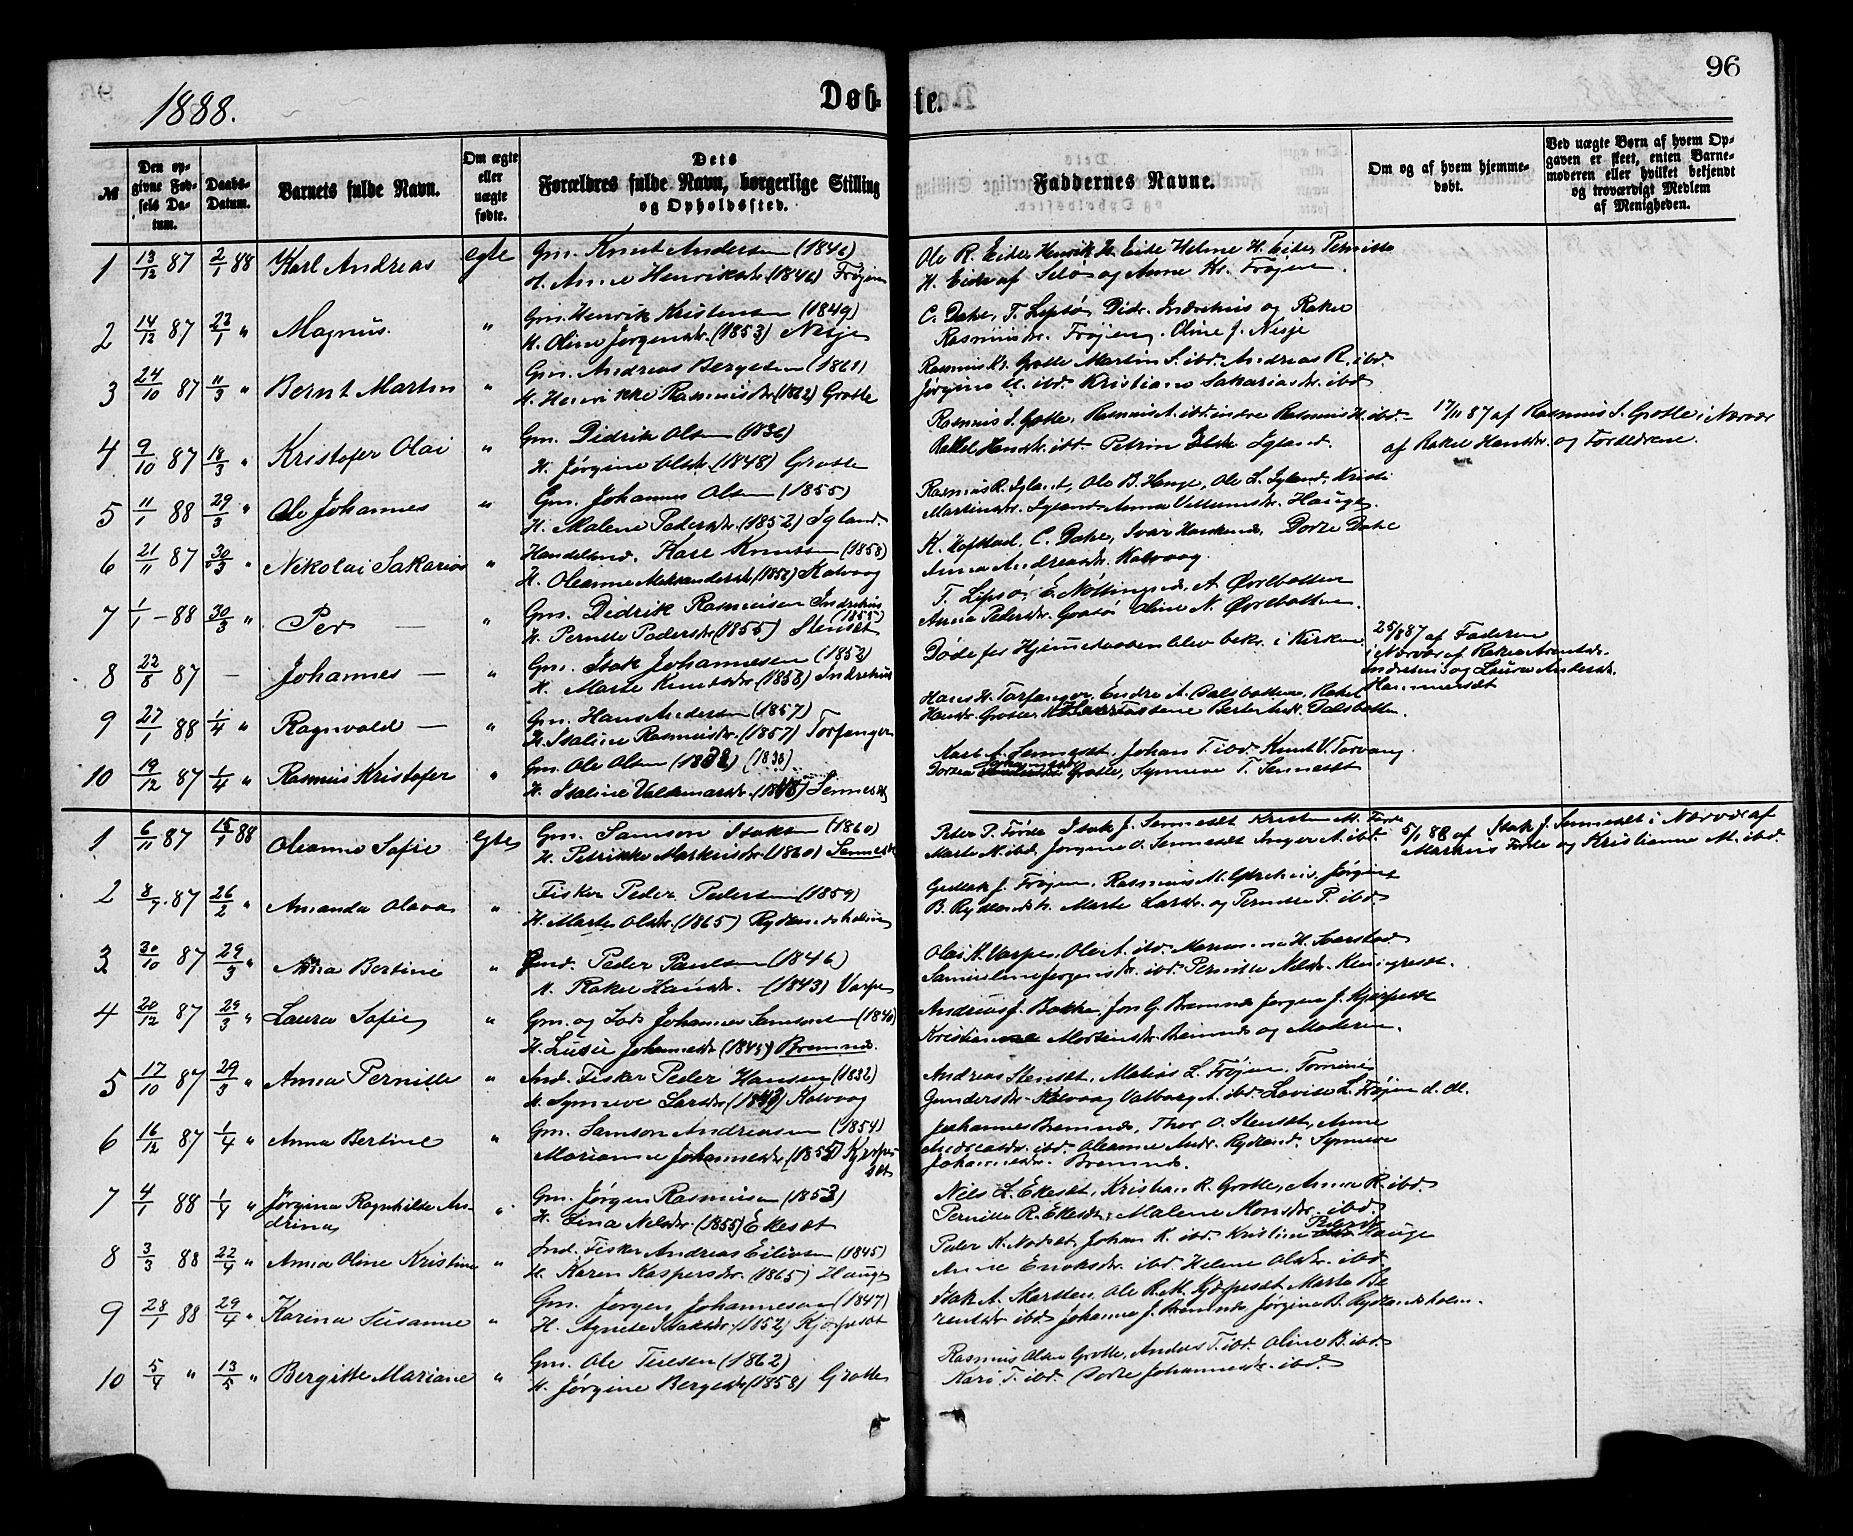 96
1888.
Døbte.
№
Den opgivne Fødsels Datum.
Daabs-Datum.
Barnets fulde Navn.
Om ægte eller uægte fødte.
Dets Forældres fulde Navn, borgerlige Stilling og Opholdssted.
Faddernes Navne.
Om og af hvem hjemmedøbt.
Ved uægte Børn af hvem Opgaven er skeet, enten Barnemoderen eller hvilket bekjendt og troværdigt Medlem af Menigheden.
1 13/12 87 2/1 88 Karl Andreas egte Gm. Knut Andersen (1846)
H. Anne Henriksdr. (1846) Frøjen
Ole R. Eide, Henrik H. Eide Helene H. Eide, Pernille
H. Eide af Selø og Anne Kr. Frøjen.
2 14/12 87 23/1 " Magnus. " Gm. Henrik Kristensen (1849)
H. Oline Jørgensdr. (1853) Nesje
C. Dahe, T. Lepsø, Didr. Indrehus og Rakel
Rasmusdr. Frøjen, Oline J. Nesje
3 24/10 87 11/3 " Bernt Martin " Gm. Andreas Bergesen (1861)
H. Henrikke Rasmusdr. (1862) Grotle
Rasmus Kr. Grotle Martin S. ibd. Andreas R. ibd.
Jørgine ibd. Kristiane Sakariasdr. ibd
4 9/10 87 18/3 " Kristofer Olai " Gm. Didrik Olsen (1836)
H. Jørgine Olsdr. (1848) Grotle
Rasmus S. Grotle, Rasmus A. ibd. Rasmus H. ibd.
Rakel Hansdr. ibd. Petrine Igland.
17/11 87 af Rasmus S. Grotle i Nærvær
af Rakel Hansdr. og Forældrene.
5 11/1 88 29/3 " Ole Johannes " Gm. Johannes Olsen (1855)
H. Malene Pedersdr. (1852) Igland.
Rasmus R. Igland, Ole B. Hauge, Ole L. Igland, Kristi
Martinsdr. Igland Anna Hauge.
6 21/11 87 30/3 " Nikolai Sakarias " Handelsmd. Karl Knutsen (1858)
H. Oleanne Aleksandersdr. (1852) Kalvaag
K. Hofstad, C. Dahe, Ivar Dorte Dahe
Anna Andreasdr. Kalvaag.
7 1/1 - 88 30/3 " Per " Gm. Didrik Rasmusen Indrehus (1855)
H. Pernille Pedersdr. (1855) Stenset
T. Lepsø, E. Nøttingnes, A. Ørebotten
Anna Pedersdr. Oline N. Ørebotten.
8 22/8 87 — Johannes — " Gm. Isak Johannesen (1852)
H. Marte Knutsdr. (1858) Indrehus
Døde før Hjemmedaaben blev bekr. i Kirken
25/8 87 af Faderen
i Nærvær af Rakel Arentsdr.
Indrehus og Laura Andersdr.
Hammerset
9 27/1 88 1/4 " Ragnvald — " Gm. Hans Andersen (1857)
H. Italine Rasmusdr. (1857) Torfanger
Hans H. Torfanger, Endre A. Dalsbotten, Rakel
Hansdr. Grotle, Dalsbotten.
10 19/12 87 1/4 " Rasmus Kristofer " Gm. Ole Olsen (1838) (1838)
H. Italine Valdemarsdr. Senneset
Karl A. Senneset, Johan T. ibd. Knut V. Torvang
Dortea Grotle, Synneve T. Senneset
1 6/11 87 15/1 88 Oleanne Sofie egte Gm. Samson Isaksen (1860)
H. Petrikke Markusdr. (1860) Senneset
Peder P. Førde Isak J. Senneset Kristen M. Førde
Marte M. ibd. Jørgine O. Senneset Inger A. ibd.
5/1 88 af Isak J. Senneset i Nærvær af
Markus Førde og Kristianne M. ibd.
2 8/7 87 26/2 " Amanda Olava " Fisker Peder Pedersen (1859)
H. Marte Olsdr. (1865) Rydlandsholmen
Gullak J. Frøjen, Rasmus M. Jørgine
B. Rydlandsh. Marte Larsdr. og Pernille P. ibd.
3 30/10 87 29/3 " Anna Bertine " Gmd. Peder Paulsen (1846)
H. Rakel Hansdr. (1843) Varpe
Olai K. Varpe, Ole A. ibd. H. Sverstad
Samueline Jørgensdr. ibd. Pernille Nilsdr.
4 20/12 87 29/3 " Laura Sofie " Gm. og Lods Johannes Samsonsen (1840)
H. Lusie Johannesdr. (1845) Bremnes.
Andreas J. Bakke, Jon G. Bremnes Jørgen J. Kjerpeset
Kristianne Mortensdr. Bremnes og Moderen.
5 17/10 87 29/3 " Anna Pernille " Ind. Fisker Peder Hansen (1832)
H. Synneve Larsdr. (1843) Kalvaag
Andreas Stenset, Matias L. Frøjen, Tomine
Gundersdr. Kalvaag Valborg A. ibd. Lovise L. Frøjen d. æl.
6 16/12 87 1/4 " Anna Bertine " Gm. Samson Andreasen (1854)
Marianne Johannesdr. (1855) Kjerpeset
Johannes Bremnes, Thor O. Stenset, Anne
Andreasdr. ibd. Oleanne Andr. Rydland. Synneve
Johannesdr. Bremnes.
7 4/1 88 1/4 " Jørgina Ragnhilde Andrina " Gm. Jørgen Rasmusen (1853)
H. Sina Nilsdr. (1855) Ekeset
Nils L. Ekeset, Kristian R. Grotle, Anne R. ibd.
Pernille R. Ekeset, Malene Monsdr. ibd.
8 3/3 88 22/4 " Anna Oline Kristine " Ind. Fisker Andreas Eilivsen (1845)
H. Karen Kaspersdr. (1865) Hauge
Peder K. Nodset, Johan K. ibd. Kristine Pedersdr. Hauge
Anne Eriksdr. ibd Helene Olsdr. ibd.
9 28/1 88 29/4 " Karina Susanne " Gm. Jørgen Johannesen (1847)
H. Agnete Isaksdr. (1852) Kjerpeset
Isak A. Skarsten, Ole R. Kjerpeset, Marte Be
rentsdr. ibd. Johanne J. Bremnes Jørgine B. Rydlandsholm.
10 5/4 " 13/5 " Bergitte Mariane " Gm. Ole Teiesen (1862)
H. Jørgine Bergesdr. (1858) Grotle
Rasmus Olsen Grotle, Anders T. ibd. Oline B. ibd.
Kari T. ibd. Dorte Johannesdr. ibd.